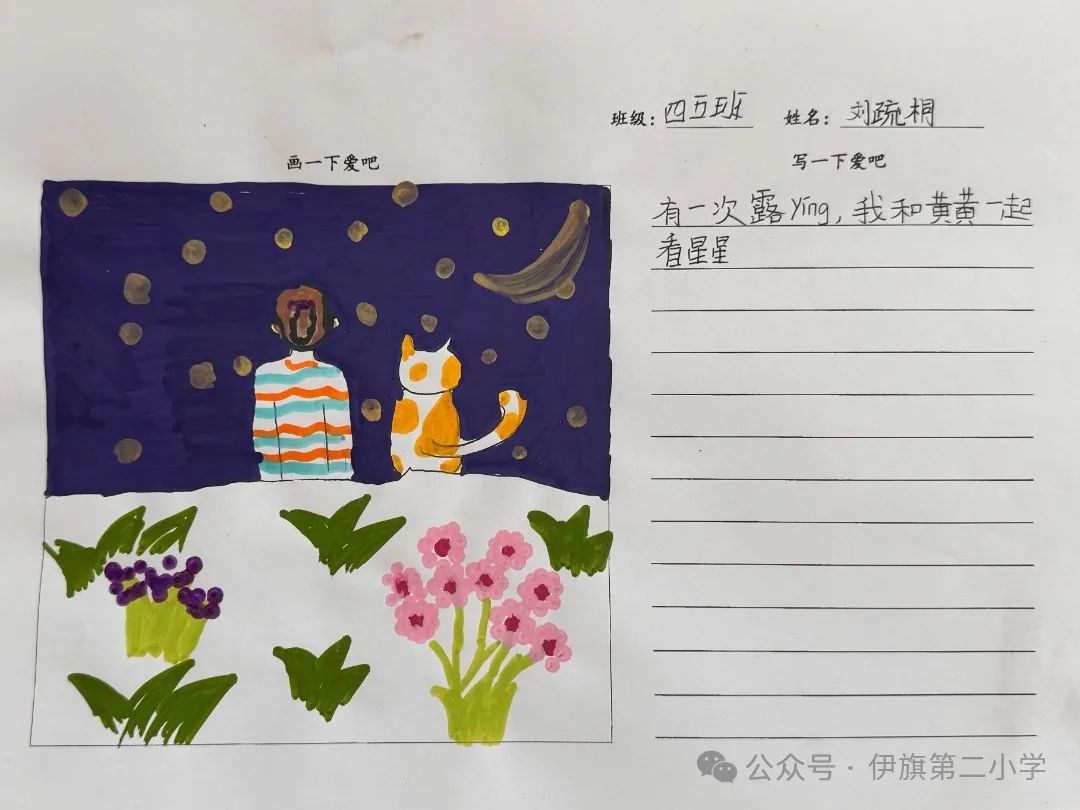 班级：四五班 姓名：刘疏桐
画一下爱吧
写一下爱吧
有一次露ying，我和黄黄一起
看星星
公众号·伊旗第二小学